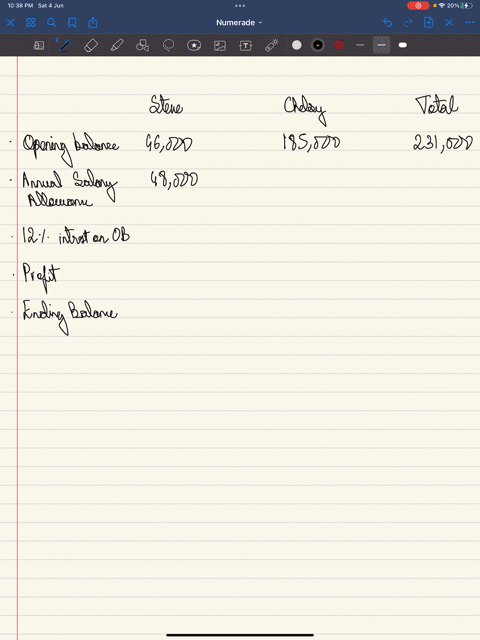 10:38 PM Sat 4 Jun 20%
Numerade
Steve Chelsy Total
· Opening balance 46,000 185,000 231,000
· Annual Salary 48,000
Allowance
· 12% intrst on OB
· Profit
· Ending Balance